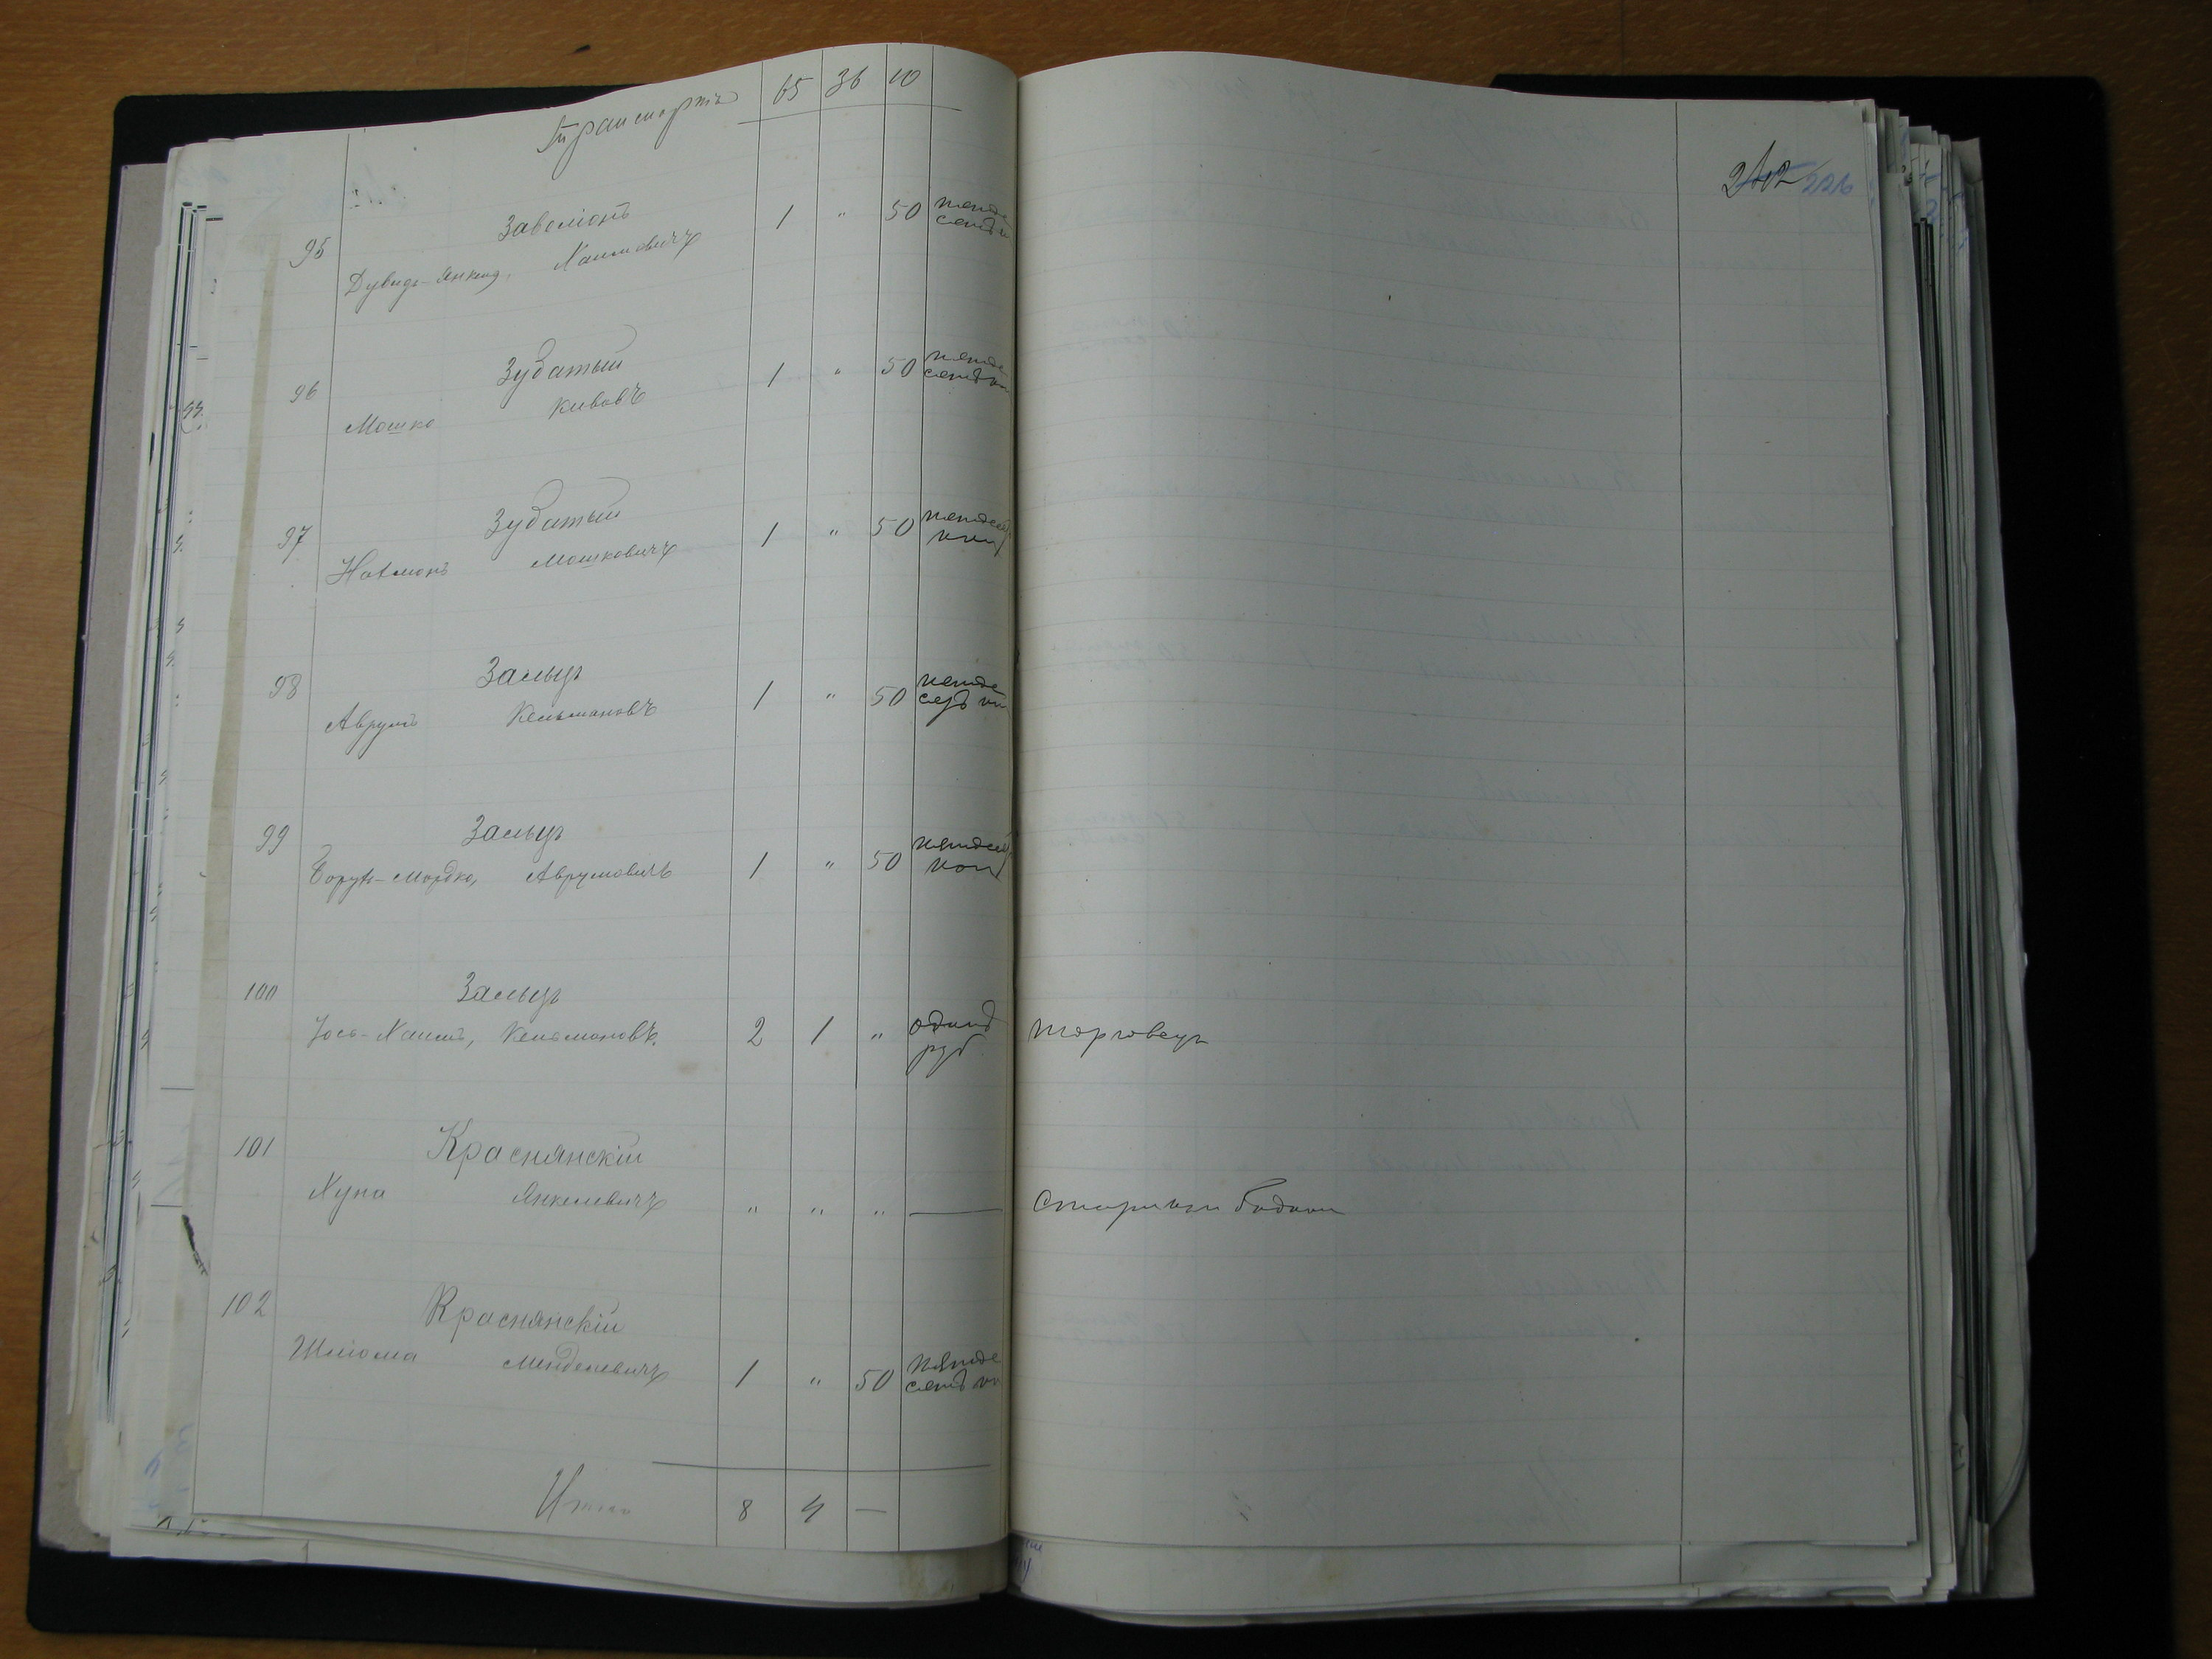 Транспортъ 65 36 10
226
95 Заволіонъ
Дувидъ-Янкель, Хаимовичъ 1 " 50 пятьде
сятъ к
96 Зубатый
Мошко Кивовъ 1 " 50 пятьде
сятъ коп
97 Зубатый
Нахманъ Мошковичъ 1 " 50 пятьдесят
коп
98 Зальцъ
Аврумъ Кельмановъ 1 " 50 пятьде
сятъ коп
99 Зальцъ
Борухъ-Мордко, Аврумовичъ 1 " 50 пятьдесят
коп
100 Зальцъ
Іось-Хаимъ, Кельмановъ. 2 1 " одинъ
руб торговецъ
101 Краснянскій
Хуна Янкелевичъ " " " — старикъ бѣдный
102 Краснянскій
Шлиома Менделевичъ 1 " 50 пятьде
сятъ ко
Итого 8 4 —